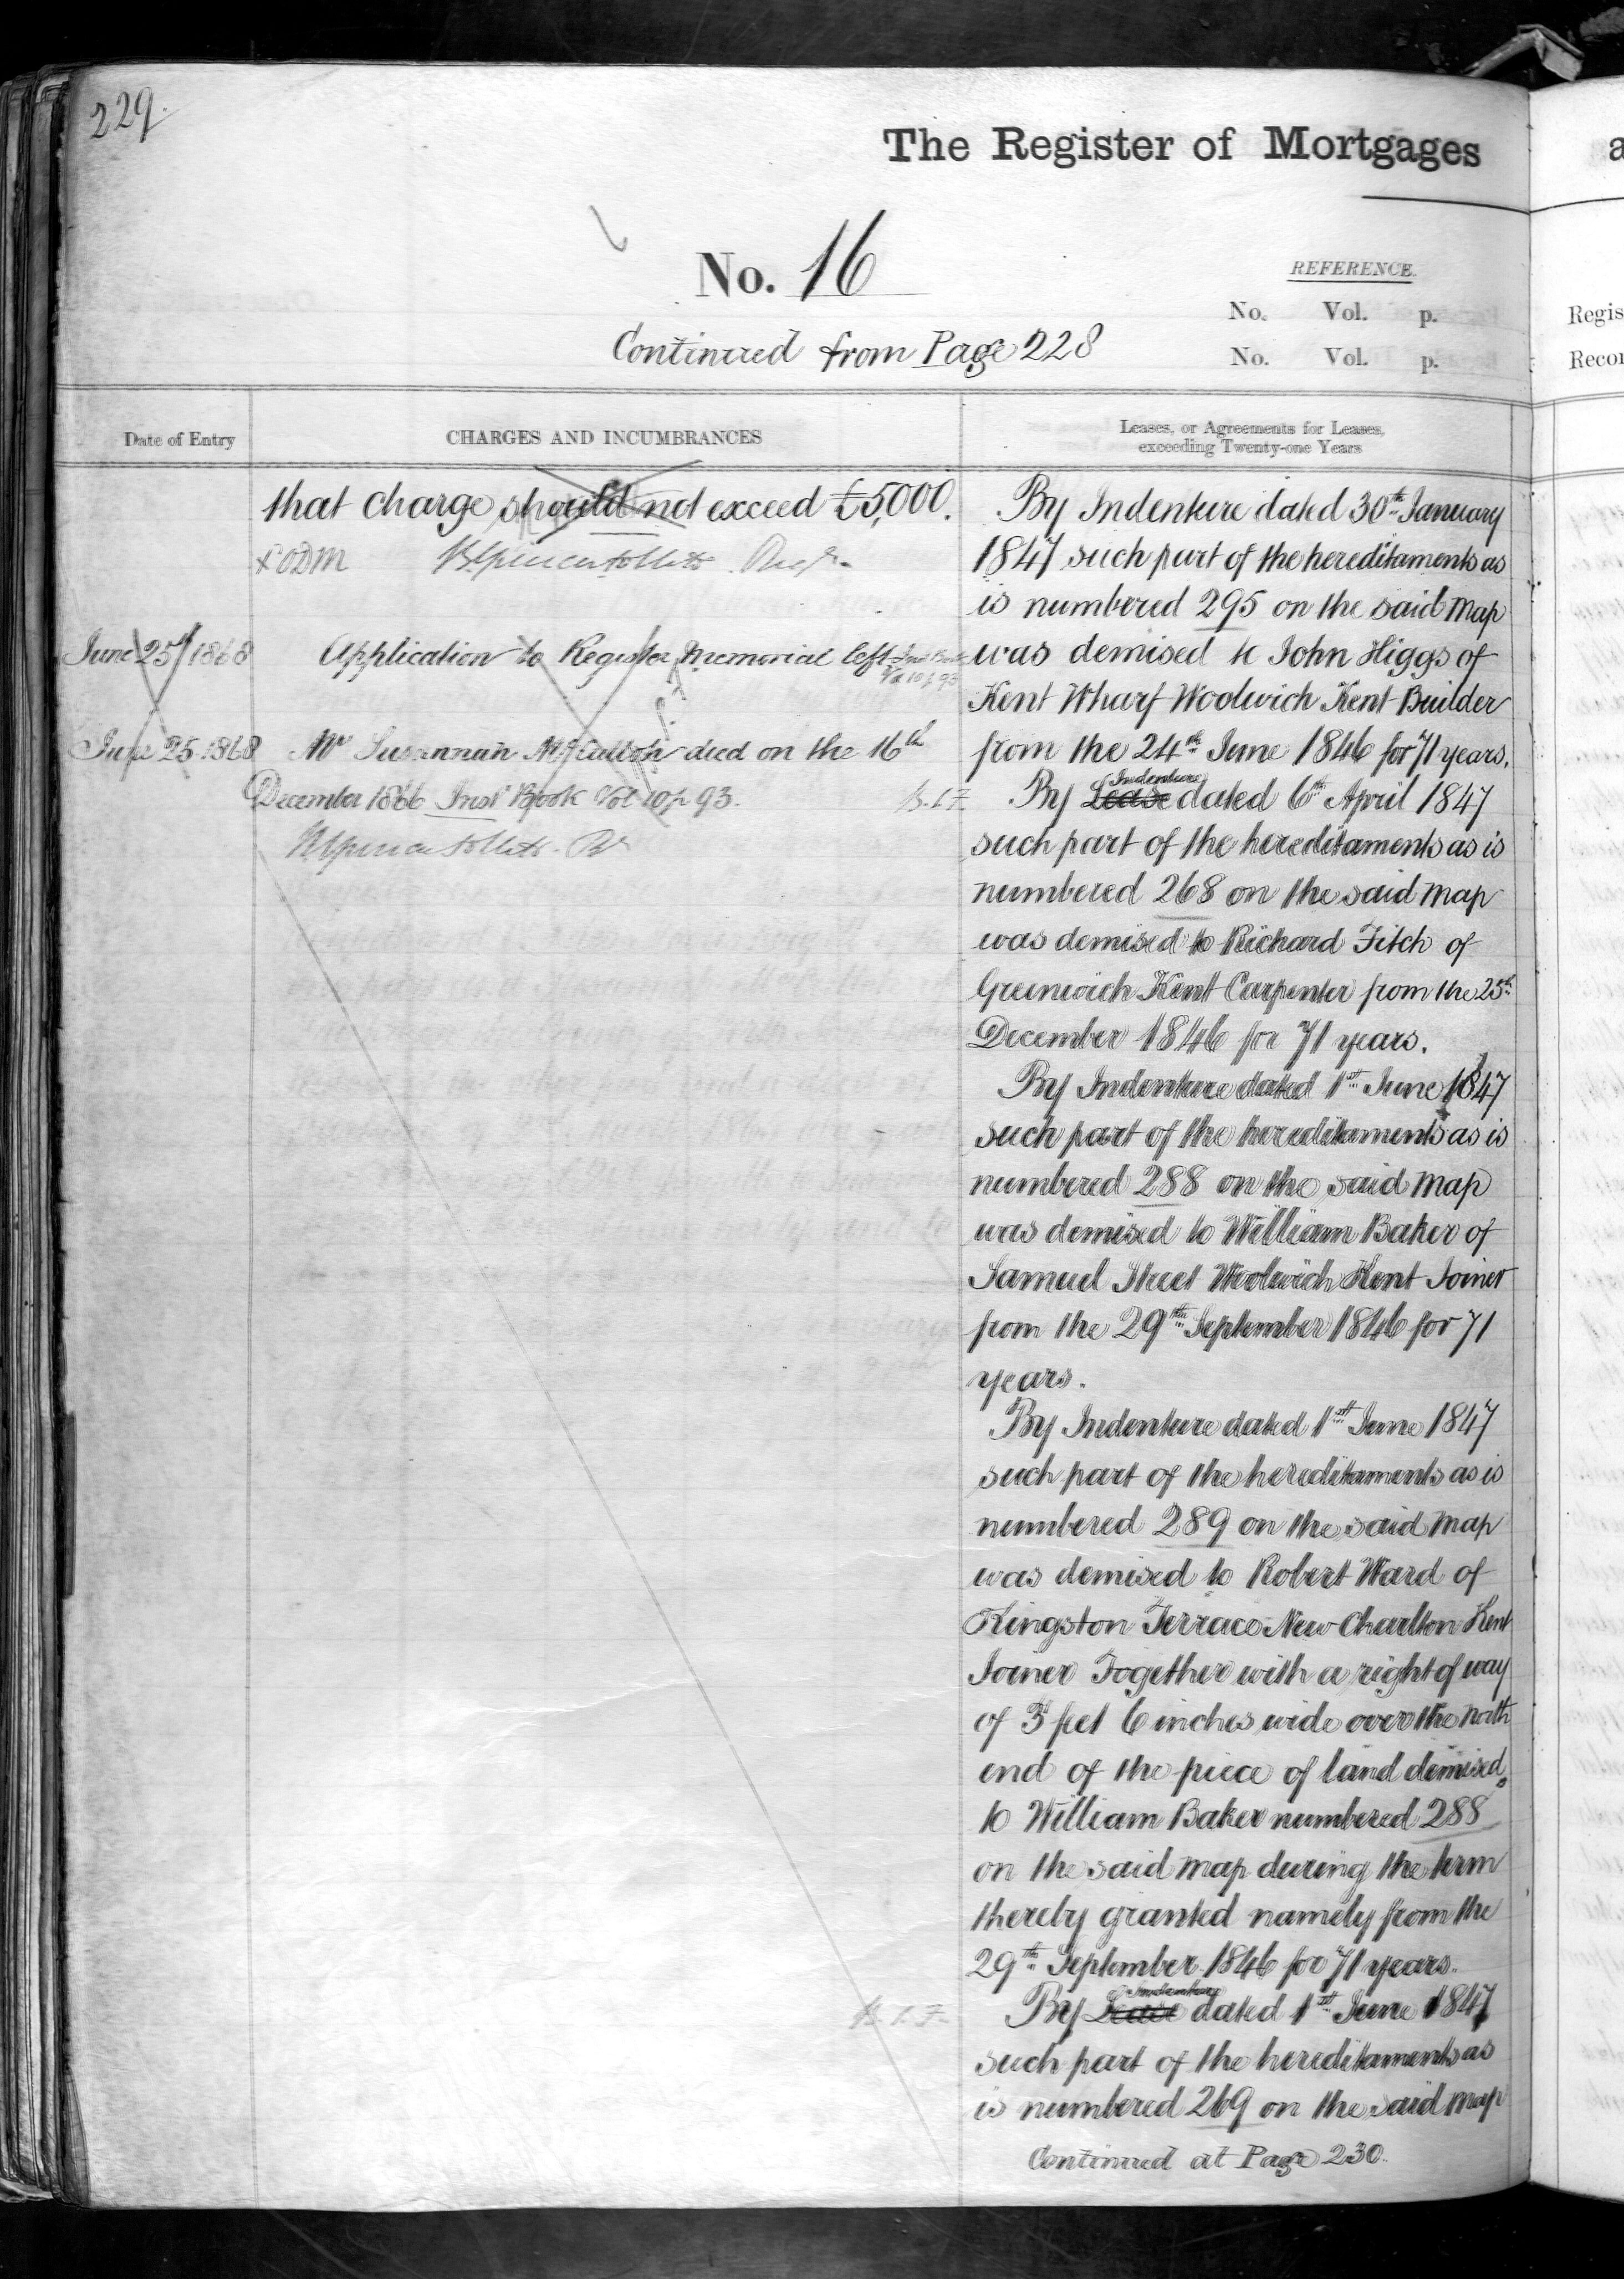 229.
The Register of Mortgages
No. 16
REFERENCE.
No. Vol. p.
No. Vol. p.
Continued from Page 228
Date of Entry
CHARGES AND INCUMBRANCES
Leases, or Agreements for Leases,
exceeding Twenty-one Years
that charge should not exceed £5,000.
June 25/1868 Application to Register Memorial left Inst Book
Vol 10 p 93
June 25. 1868 Susannah died on the 16th
December 1866 Inst Book Vol 10 p 93.
By Indenture dated 30th January
1847 such part of the hereditaments as
is numbered 295 on the said map
was demised to John Higgs of
Kent Wharf Woolwich Kent Builder
from the 24th June 1846 for 71 years.
Indenture
By Lease dated 6th April 1847
such part of the hereditaments as is
numbered 268 on the said map
was demised to Richard Fitch of
Greenwich Kent Carpenter from the 25th
December 1846 for 71 years.
By Indenture dated 1st June 1847
such part of the hereditaments as is
numbered 288 on the said map
was demised to William Baker of
Samuel Street Woolwich Kent Joiner
from the 29th September 1846 for 71
years.
By Indenture dated 1st June 1847
such part of the hereditaments as is
numbered 289 on the said map
was demised to Robert Ward of
Kingston Terrace New Charlton Kent
Joiner Together with a right of way
of 3 feet 6 inches wide over the north
end of the piece of land demised
to William Baker numbered 288
on the said map during the term
thereby granted namely from the
29th September 1846 for 71 years.
Indenture
By Lease dated 1st June 1847
such part of the hereditaments as
is numbered 269 on the said map
Continued at Page 230.
a
Regis
Recor